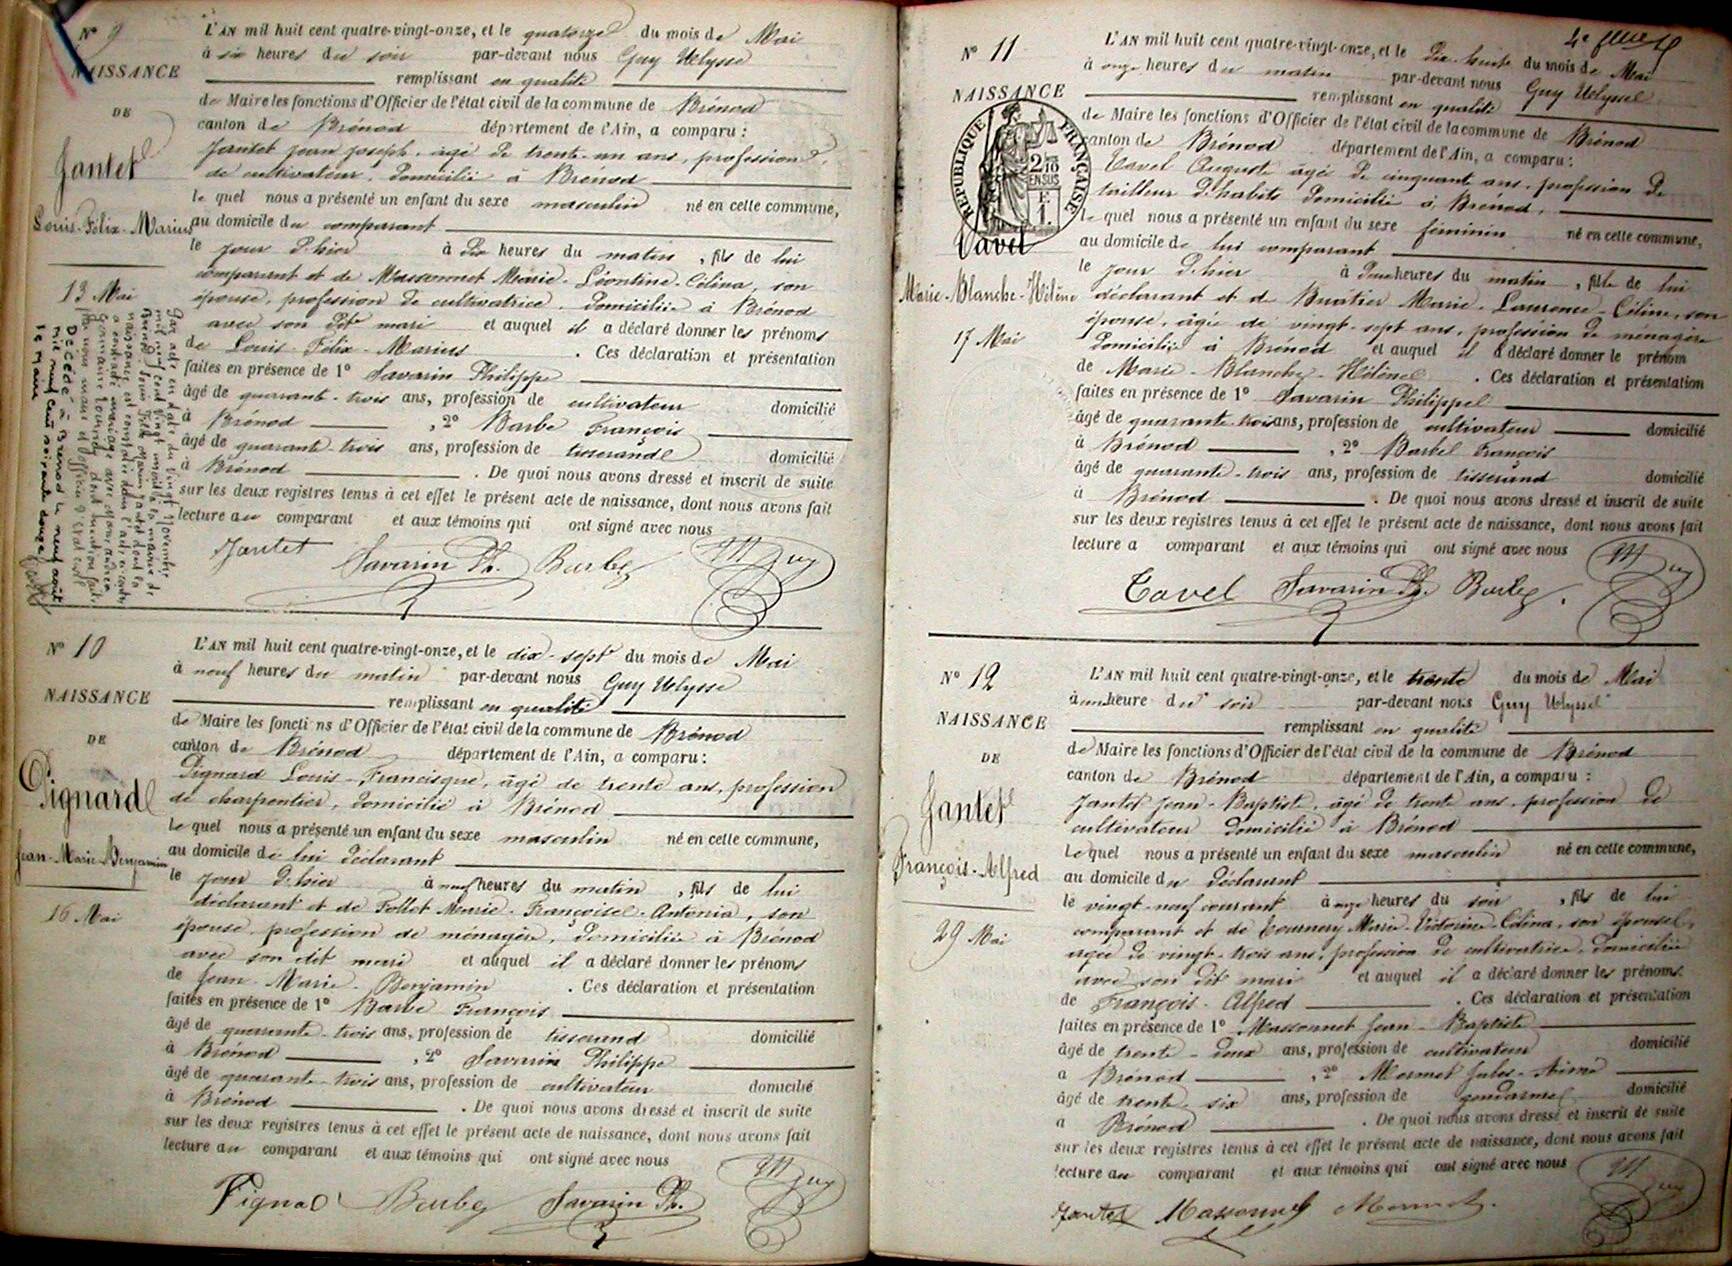 N° 9
NAISSANCE
DE
Jantet
Louis-Félix-Marius
13 Mai
L'AN mil huit cent quatre-vingt-onze, et le quatorze du mois de Mai
à six heures du soir par-devant nous Guy Ulysse
remplissant en qualité
de Maire les fonctions d'Officier de l'état civil de la commune de Brénod
canton de Brénod département de l'Ain, a comparu :
Jantet Jean Joseph, âgé de trente-un ans, profession
de cultivateur, domicilié à Brénod
le quel nous a présenté un enfant du sexe masculin né en cette commune,
au domicile du comparant
le jour d'hier à dix heures du matin, fils de lui
comparant et de Massonnet Marie-Léontine-Célina, son
épouse, profession de cultivatrice, domiciliée à Brénod
avec son dit mari et auquel il a déclaré donner les prénoms
de Louis-Félix-Marius. Ces déclaration et présentation
faites en présence de 1° Savarin Philippe
âgé de quarante-trois ans, profession de cultivateur domicilié
à Brénod, 2° Barbe François
âgé de quarante-trois ans, profession de tisserand domicilié
à Brénod. De quoi nous avons dressé et inscrit de suite
sur les deux registres tenus à cet effet le présent acte de naissance, dont nous avons fait
lecture au comparant et aux témoins qui ont signé avec nous
Jantet Savarin Ph. Barbe Guy
Par acte en date du vingt novembre
mil neuf cent vingt
Décédé à Brénod le neuf août
mil neuf cent soixante douze
le Maire
N° 10
NAISSANCE
DE
Pignard
Jean-Marie-Benjamin
16 Mai
L'AN mil huit cent quatre-vingt-onze, et le dix-sept du mois de Mai
à neuf heures du matin par-devant nous Guy Ulysse
remplissant en qualité
de Maire les fonctions d'Officier de l'état civil de la commune de Brénod
canton de Brénod département de l'Ain, a comparu :
Pignard Louis-Francisque, âgé de trente ans, profession
de charpentier, domicilié à Brénod
le quel nous a présenté un enfant du sexe masculin né en cette commune,
au domicile de lui déclarant
le jour d'hier à neuf heures du matin, fils de lui
déclarant et de Follet Marie-Françoise-Antonia, son
épouse, profession de ménagère, domiciliée à Brénod
avec son dit mari et auquel il a déclaré donner les prénoms
de Jean-Marie-Benjamin. Ces déclaration et présentation
faites en présence de 1° Barbe François
âgé de quarante-trois ans, profession de tisserand domicilié
à Brénod, 2° Savarin Philippe
âgé de quarante-trois ans, profession de cultivateur domicilié
à Brénod. De quoi nous avons dressé et inscrit de suite
sur les deux registres tenus à cet effet le présent acte de naissance, dont nous avons fait
lecture au comparant et aux témoins qui ont signé avec nous
Pignard Barbe Savarin Ph. Guy
N° 11
NAISSANCE
RÉPUBLIQUE FRANÇAISE
2/10 EN SUS
F 1.
Tavel
Marie-Blanche-Hélène
17 Mai
L'AN mil huit cent quatre-vingt-onze, et le dix-huit du mois de Mai
à onze heures du matin par-devant nous Guy Ulysse
remplissant en qualité
de Maire les fonctions d'Officier de l'état civil de la commune de Brénod
canton de Brénod département de l'Ain, a comparu :
Tavel Auguste âgé de cinquante ans, profession de
tailleur d'habits domicilié à Brénod,
le quel nous a présenté un enfant du sexe féminin né en cette commune,
au domicile de lui comparant
le jour d'hier à deux heures du matin, fille de lui
déclarant et de Buatier Marie-Laurence-Céline, son
épouse, âgée de vingt-sept ans, profession de ménagère
domiciliée à Brénod et auquel il a déclaré donner le prénom
de Marie-Blanche-Hélène. Ces déclaration et présentation
faites en présence de 1° Savarin Philippe
âgé de quarante-trois ans, profession de cultivateur domicilié
à Brénod, 2° Barbe François
âgé de quarante-trois ans, profession de tisserand domicilié
à Brénod. De quoi nous avons dressé et inscrit de suite
sur les deux registres tenus à cet effet le présent acte de naissance, dont nous avons fait
lecture a comparant et aux témoins qui ont signé avec nous
Tavel Savarin Ph. Barbe Guy
N° 12
NAISSANCE
DE
Jantet
François-Alfred
29 Mai
L'AN mil huit cent quatre-vingt-onze, et le trente du mois de Mai
à une heure du soir par-devant nous Guy Ulysse
remplissant en qualité
de Maire les fonctions d'Officier de l'état civil de la commune de Brénod
canton de Brénod département de l'Ain, a comparu :
Jantet Jean-Baptiste, âgé de trente ans, profession de
cultivateur domicilié à Brénod
le quel nous a présenté un enfant du sexe masculin né en cette commune,
au domicile du déclarant
le vingt-neuf courant à onze heures du soir, fils de lui
comparant et de Tournery Marie-Victorine-Célina, son épouse,
âgée de vingt-trois ans, profession de cultivatrice, domiciliée
avec son dit mari et auquel il a déclaré donner les prénoms
de François-Alfred. Ces déclaration et présentation
faites en présence de 1° Massonnet Jean-Baptiste
âgé de trente-deux ans, profession de cultivateur domicilié
à Brénod, 2° Mermet Jules-Aimé
âgé de trente-six ans, profession de gendarme domicilié
à Brénod. De quoi nous avons dressé et inscrit de suite
sur les deux registres tenus à cet effet le présent acte de naissance, dont nous avons fait
lecture au comparant et aux témoins qui ont signé avec nous
Jantet Massonnet Mermet Guy